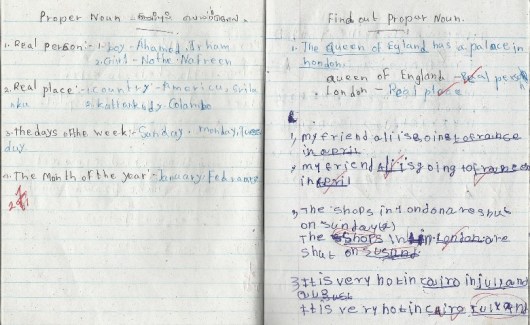 Proper Noun
1. Real person:- 1. boy - Ahamed, Irham
2. Girl - Natha Nafreen
2. Real place:- 1. Country - America, Srila
nka
2. Kattankudy, Colombo
3. the days of the week:- Sunday, monday, tues
day
4. The Month of the year:- January
Find out Propar Noun.
1. The queen of Egland has a palace in
hondon.
queen of England - Real pers
London - Real place
1, my friend ali is going to france
in april
my friend Ali is going to france
in April
2, The shops in london are shut
on sunday
The shops in London are
shut on
3 It is very hot in cairo in july and
august
It is very hot in cairo